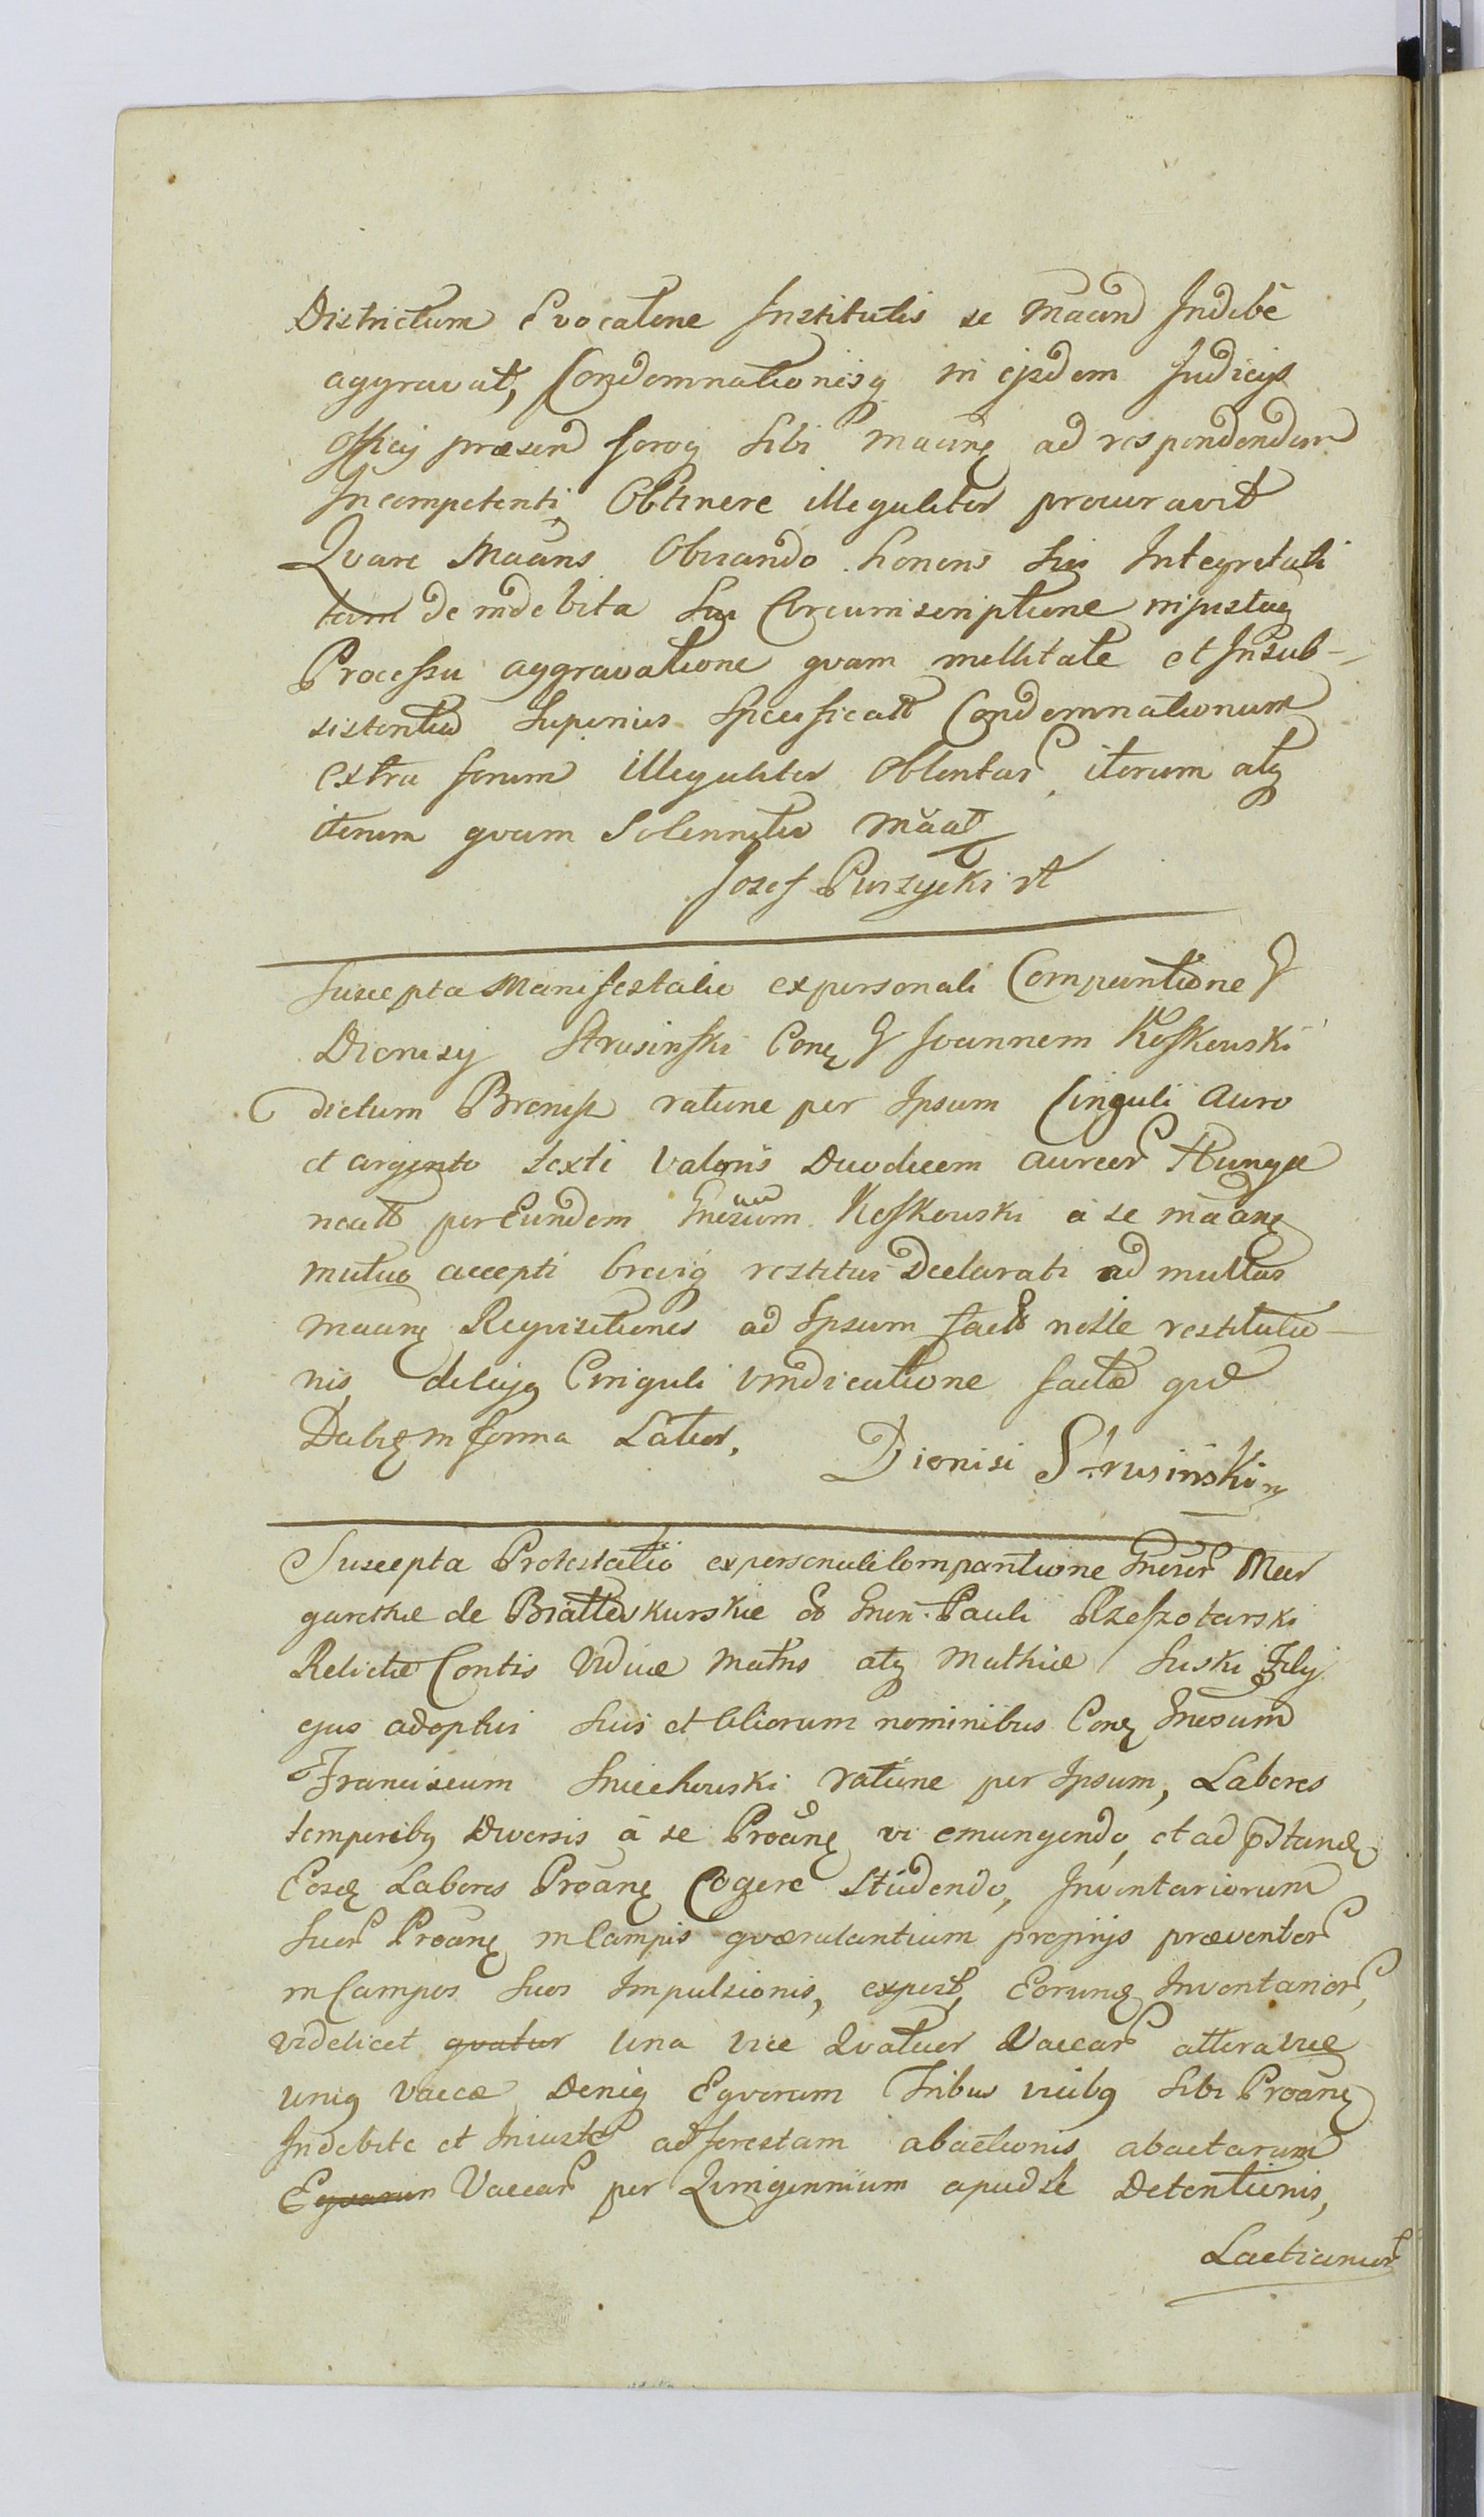 Districtum Evocatione Institutis se Maãn Indebẽ
aggravat, Condemnationisq in ejsdem Judicijs
Officij præsen foroq sibi maãnẽ ad respondendum
Incompetenti Obtinere illegaliter procuravit
Qvare Maãns Obviando honoris sui Integritati
tam de indebita sui Circumscriptione injustaq
Processu aggravatione qvam nullitate et Insub-
sistentia Superius Specificatt Condemnationum
extra forum Illegaliter Obtentar, iterum atq
iterum qvam Solenniter Mãat
Josef Purzycki
Suscepta Manifestatio ex personali Comparitione G
Dionisij Strusinski Con G Joannem Koskowski
dictum Bronisz ratione per Ipsum Cinguli Auro
et argento texti Valoris Duodecem aureor Hunga
ricall per Eundem Gnẽsum Koskowski a se maãnẽ
mutuo accepti brevig restitui Declarati ad multas
maãnẽ Reqvisitiones ad Ipsum fact nolle restitutio-
nis deliijq Cinguli Vindicatione factæ qvæ
Dabit in forma Latior, Dionisi Strusinski
Suscepta Protestatio ex personali Comparitione Gnẽsor Mar
garethæ de Bialleskurskie G Gnẽr. Pauli Rzeszotarski
Relictæ Contis Viduæ Matris atq Mathiæ Suski Filij
ejus adoptivi suis et aliorum nominibus Con Gnẽsum
Franciscum Sniechowski ratione per Ipsum, Labores
temporibq Diversis â se Proãnẽ vi emungendo, et ad p̃stand
Eosd Labores Proãnẽ Cogere Studendo, Inventariorum
Suor Proãnẽ in Campis qværulantium proprijs præventor
in Campos suos Impulsionis, expost, Eorund Inventarior,
videlicet qvatuor Una vice Qvatuor Vaccar altera vice
uniq Vaccæ Deniq Eqvorum Tribus vicibq sibi Proãnẽ
Indebite et Iniuste ad forestam abactionis abactarum
Eqvarum Vaccar per Qvingennium apud se Detentionis,
Lacticinior